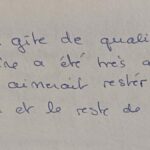 gîte de quali
a été très a
aimerait restér
et le reste de